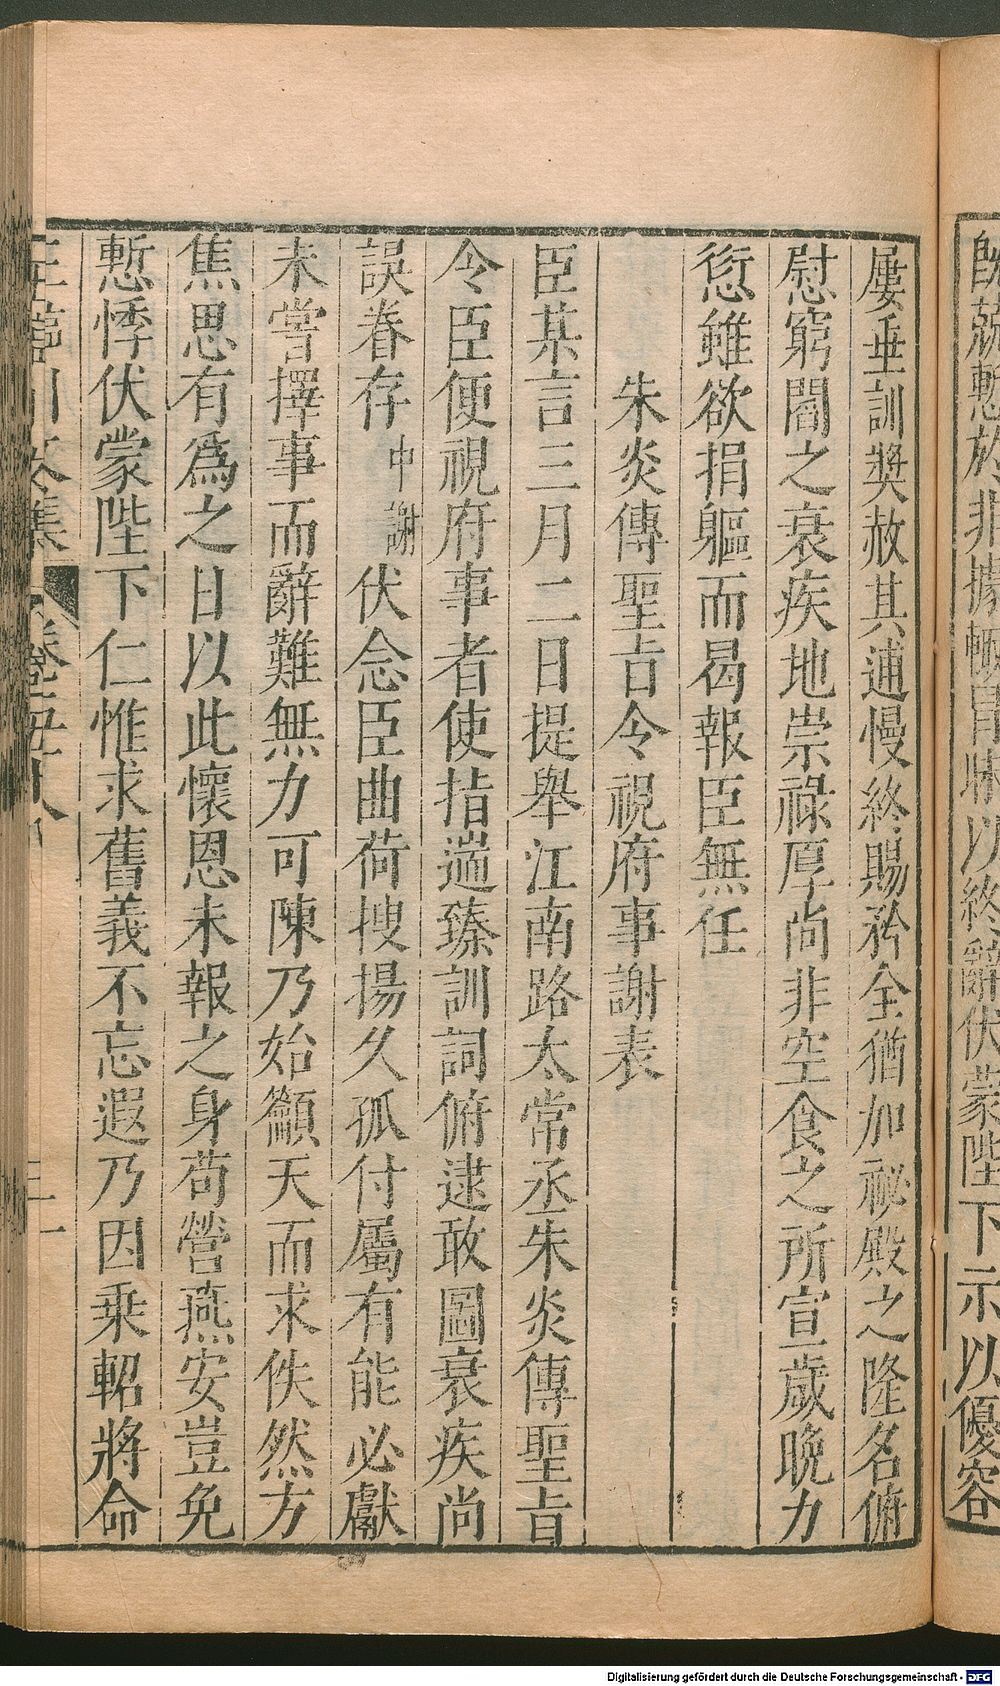 旣蔬慙於非據輙冒昧以終辭伏蒙陛下示以優容
屢垂訓奬赦其逋慢終賜矜全猶加祕殿之隆名俯
慰窮閻之衰疾地崇祿厚尚非空食之所宣歲晚力
愆雖欲捐軀而曷報臣無任
朱炎傳聖旨令視府事謝表
臣某言三月二日提舉江南路太常丞朱炎傳聖旨
令臣便視府事者使指遄臻訓詞俯逮敢圖衰疾尚
誤眷存中謝伏念臣曲荷搜揚久孤付屬有能必獻
未嘗擇事而辭難無力可陳乃始籲天而求佚然方
焦思有爲之日以此懷恩未報之身苟營燕安豈免
慙悸伏蒙陛下仁惟求舊義不忘遐乃因乗軺將命
王荊川文集 卷五十八 二一
Digitalisierung gefördert durch die Deutsche Forschungsgemeinschaft - DFG